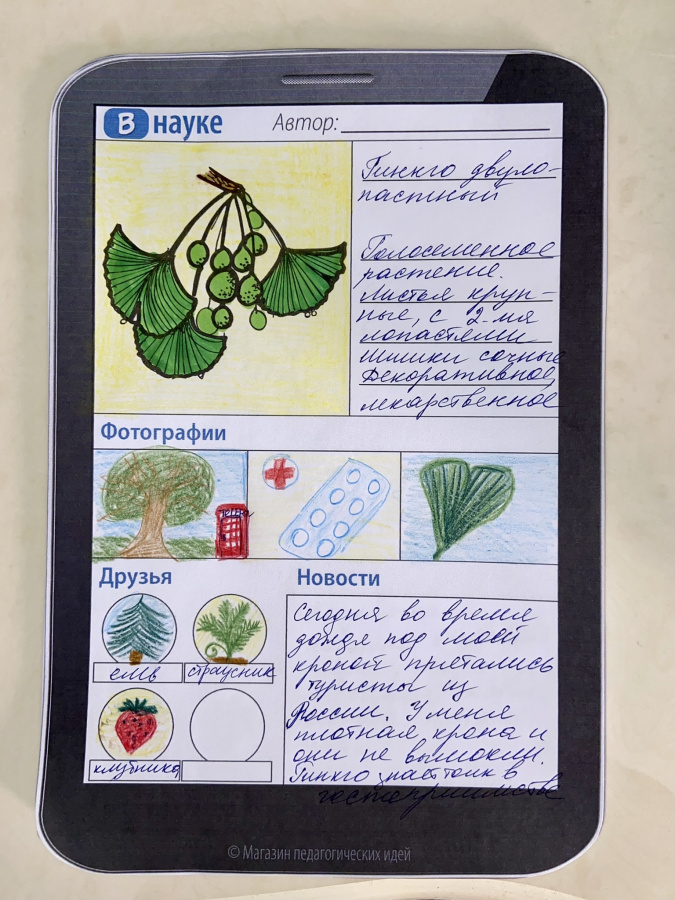 В науке
Автор:
Гинкго двуло-
пастный
Голосеменное
растение.
Листья круп-
ные, с 2-мя
лопастями
Шишки сочные
Декоративное,
лекарственное
Фотографии
Друзья
ель
страусник
клубника
Новости
Сегодня во время
дождя под моей
кроной прятались
туристы из
России. У меня
плотная крона и
они не вымокли.
Гинкго знает толк в
гостеприимстве
© Магазин педагогических идей